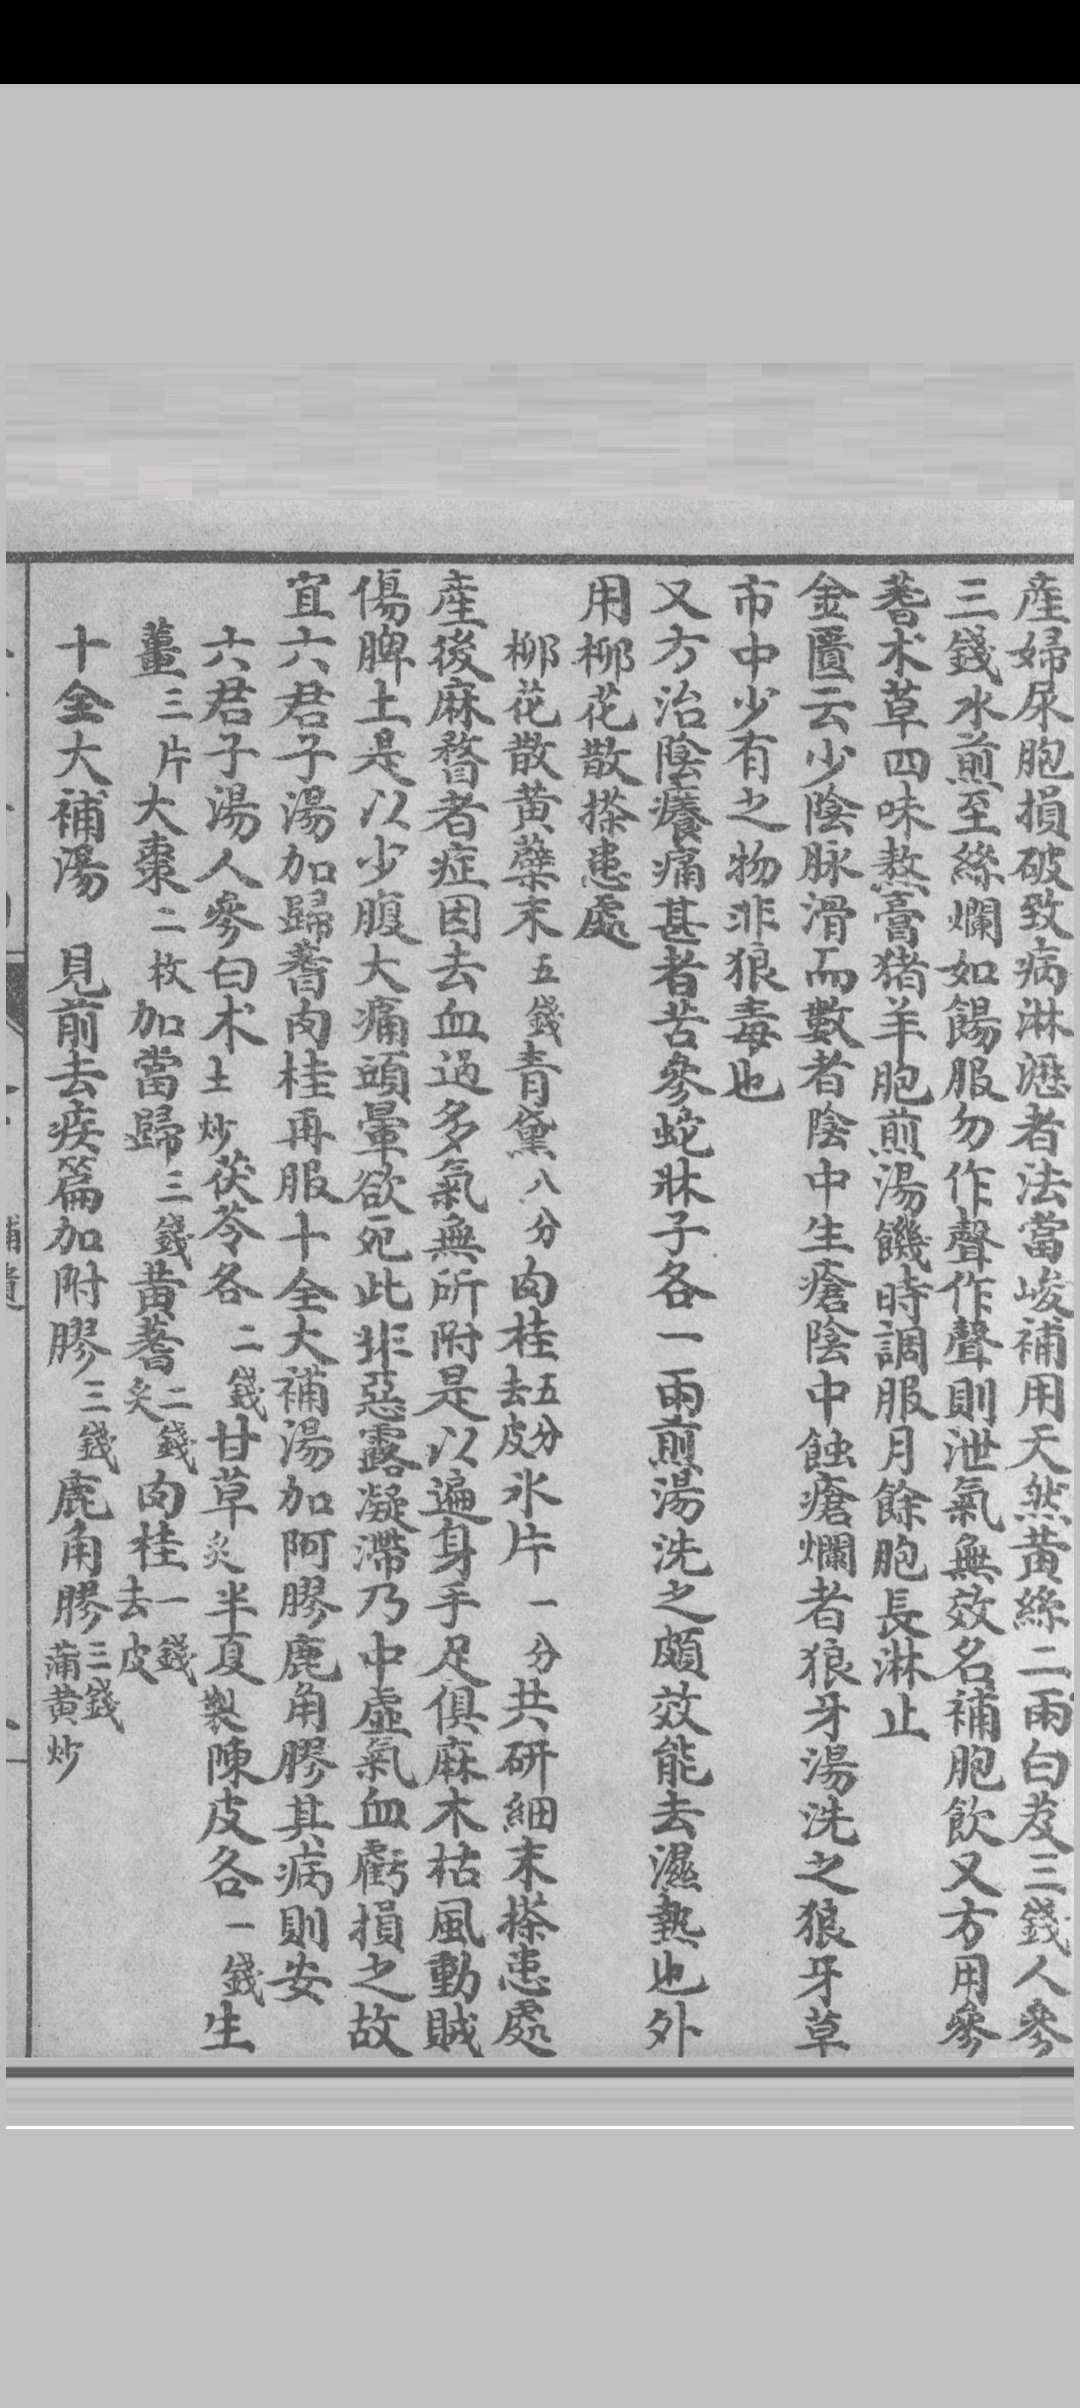 產婦尿胞損破致病淋瀝者法當峻補用天然黃絲二兩白芨三錢人參
三錢水煎至絲爛如餳服勿作聲作聲則泄氣無效名補胞飲又方用參
蓍术草四味熬膏猪羊胞煎湯饑時調服月餘胞長淋止
金匱云少陰脉滑而數者陰中生瘡陰中蝕瘡爛者狼牙湯洗之狼牙草
市中少有之物非狼毒也
又方治陰癢痛甚者苦參蛇牀子各一兩煎湯洗之頗效能去濕熱也外
用柳花散搽患處
柳花散黃蘗末五錢青黛八分肉桂五分去皮氷片一分共研細末搽患處
產後麻瞀者症因去血過多氣無所附是以遍身手足俱麻木枯風動賊
傷脾土是以少腹大痛頭暈欲死此非惡露凝滯乃中虛氣血虧損之故
宜六君子湯加歸蓍肉桂再服十全大補湯加阿膠鹿角膠其病則安
六君子湯人參白术土炒茯苓各二錢甘草炙半夏製陳皮各一錢生
薑三片大棗二枚加當歸三錢黃蓍二錢炙肉桂一錢去皮
十全大補湯 見前去疾篇加附膠三錢鹿角膠三錢蒲黃炒